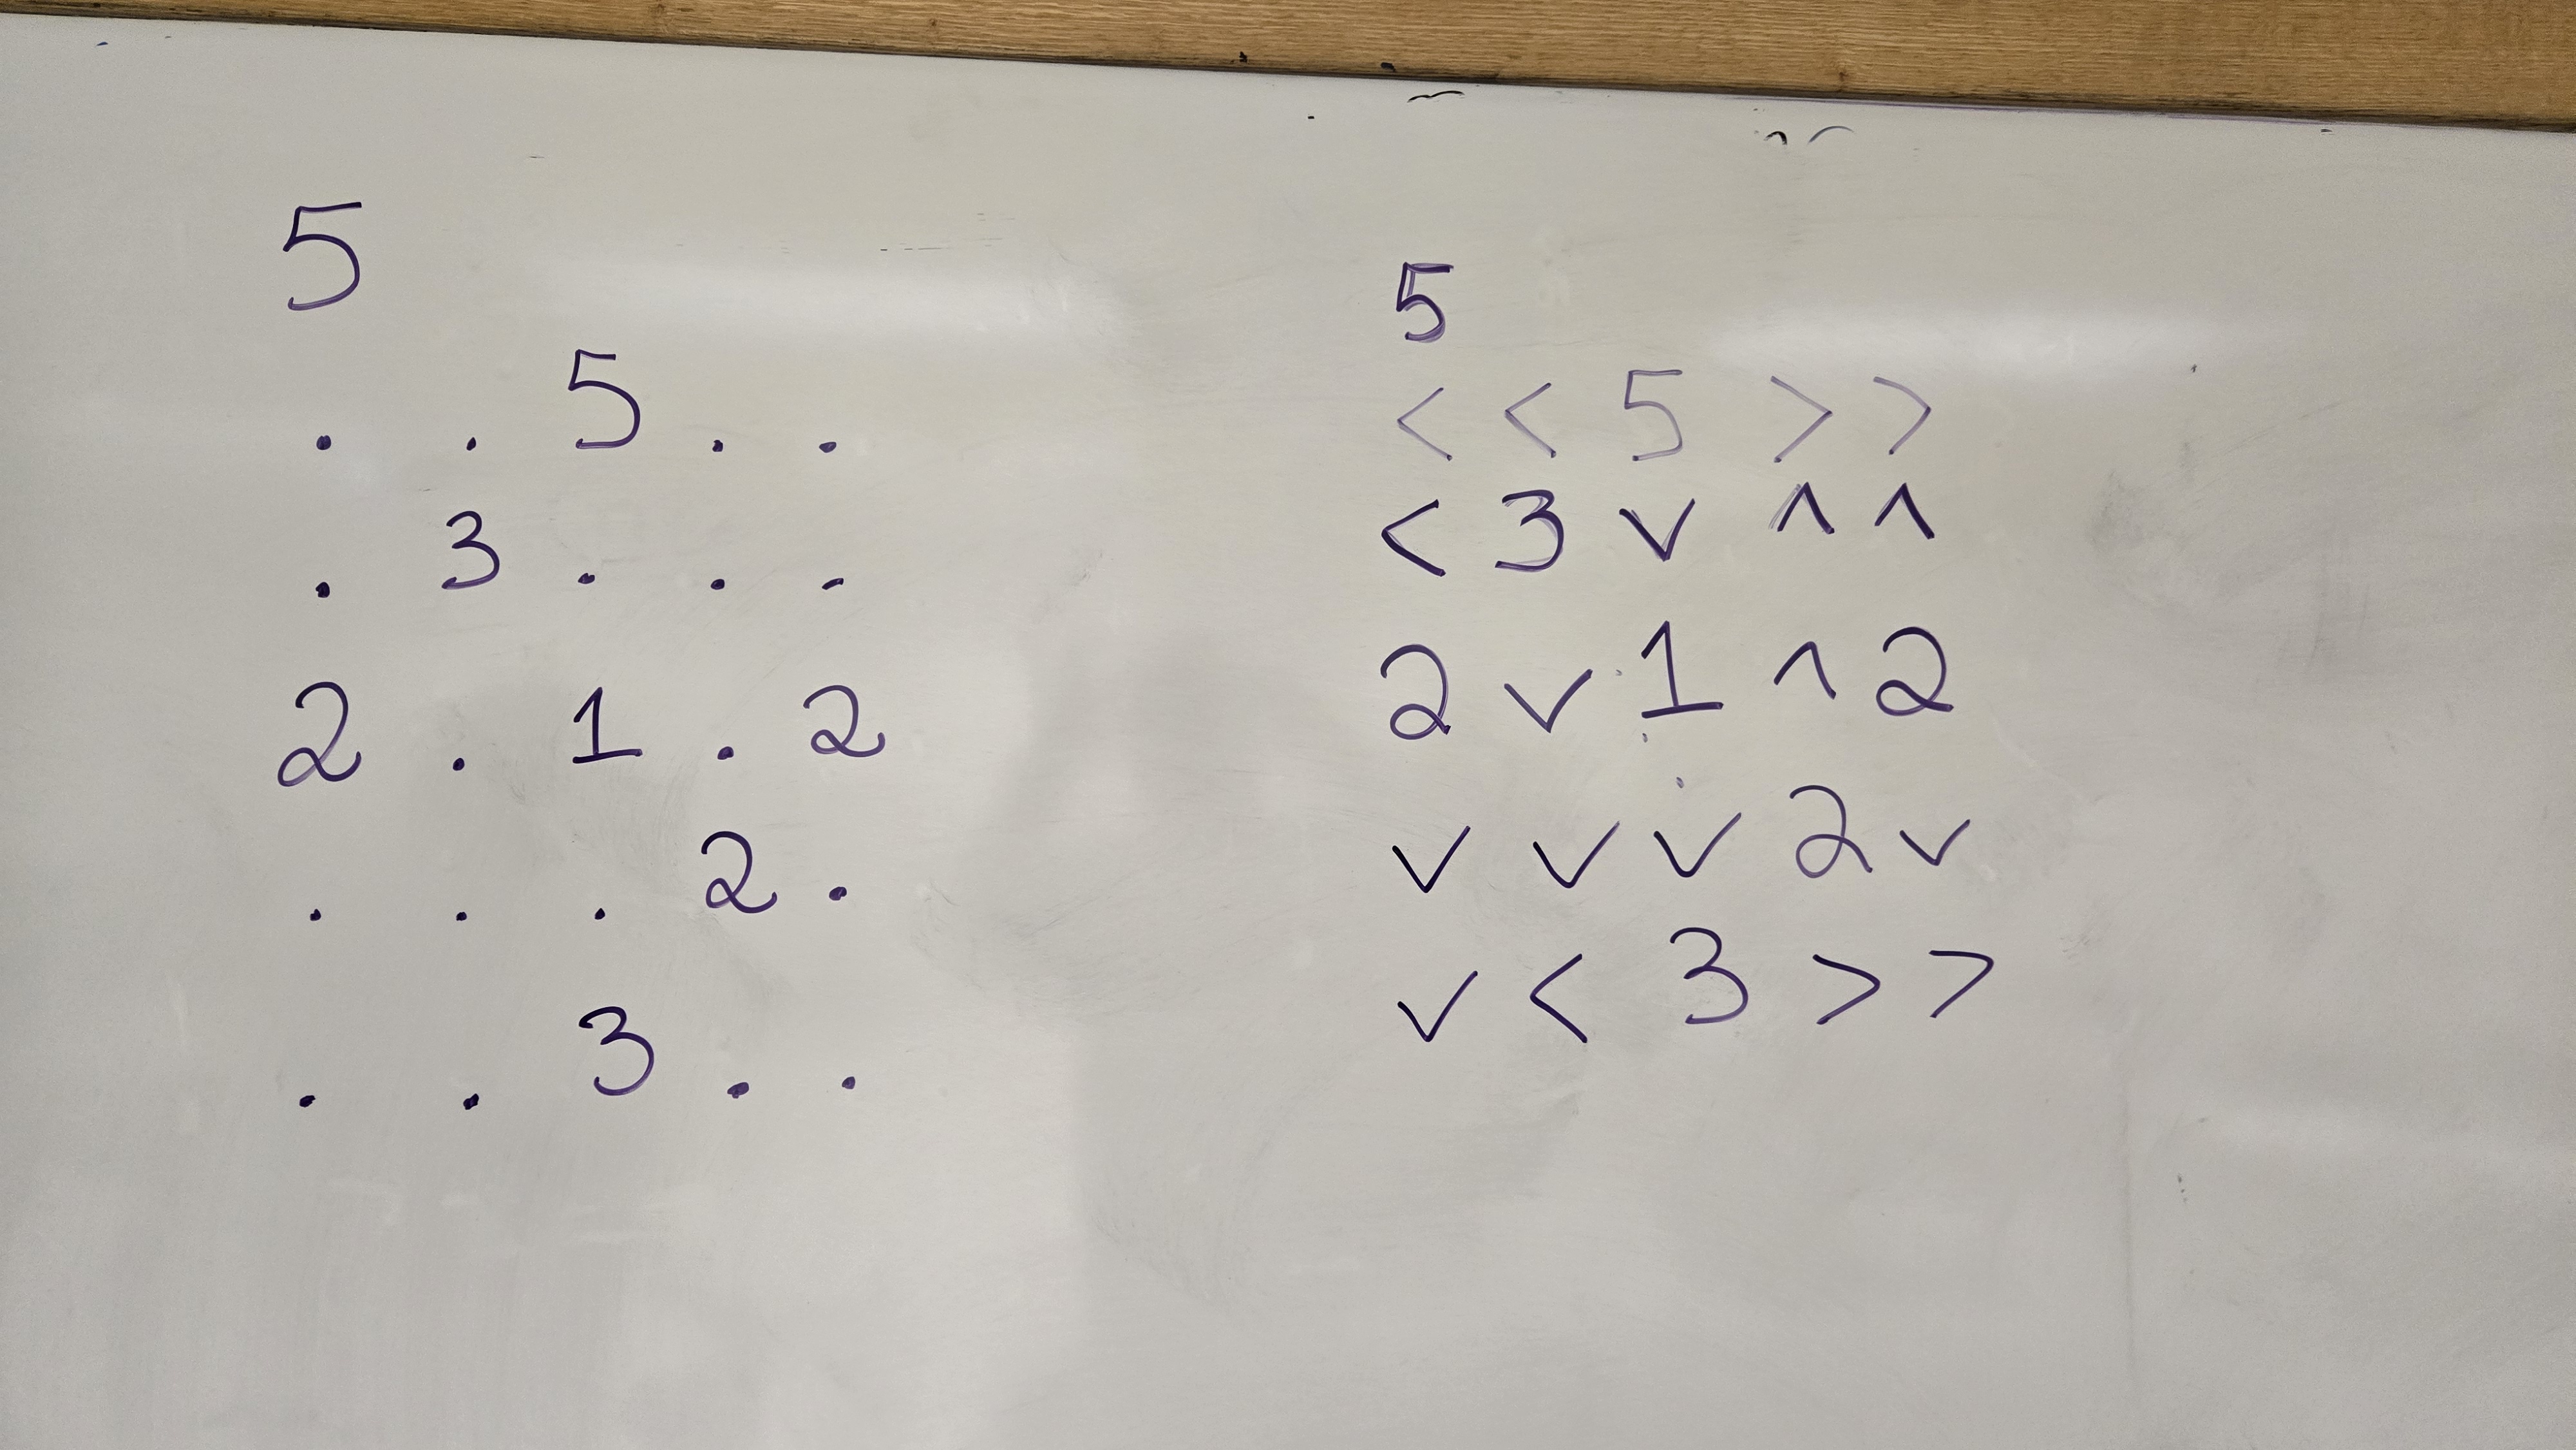 5
. . 5 . .
. 3 . . .
2 . 1 . 2
. . . 2 .
. . 3 . .
5
< < 5 > >
< 3 v ^ ^
2 v 1 ^ 2
v v v 2 v
v < 3 > >